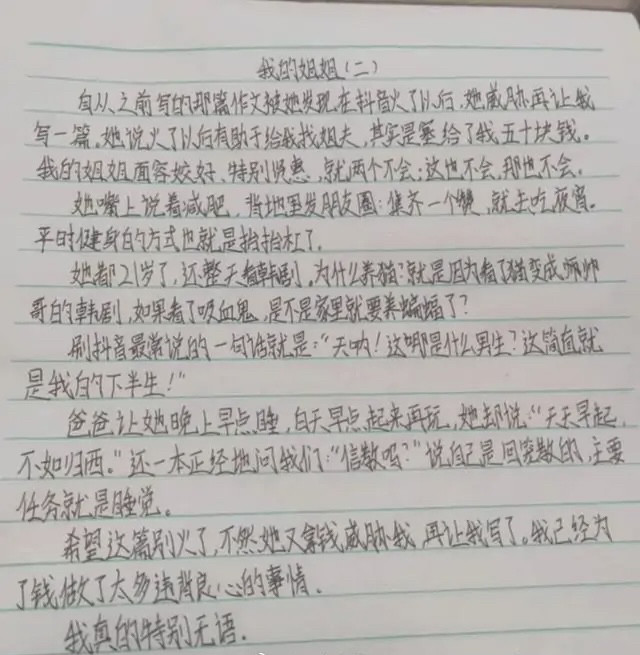 我的姐姐(二)
自从之前写的那篇作文被她发现在抖音火了以后,她威胁再让我
写一篇。她说火了以后有助于给我找姐夫,其实是塞给了我五十块钱。
我的姐姐面容姣好,特别贤惠,就两个不会:这也不会,那也不会。
她嘴上说着减肥,背地里发朋友圈:集齐一个赞,就去吃夜宵。
平时健身的方式也就是抬抬杠了。
她都21岁了,还整天看韩剧。为什么养猫?就是因为看了猫变成师帅
哥的韩剧,如果看了吸血鬼,是不是家里就要养蝙蝠了?
刷抖音最常说的一句话就是:“天呐!这哪是什么男生?这简直就
是我的下半生!”
爸爸让她晚上早点睡,白天早点起来再玩,她却说:“天天早起,
不如归西。”还一本正经地问我们:“信教吗?”说自己是回笼教的,主要
任务就是睡觉。
希望这篇别火了,不然她又拿钱威胁我,再让我写了。我已经为
了钱做了太多违背良心的事情。
我真的特别无语.